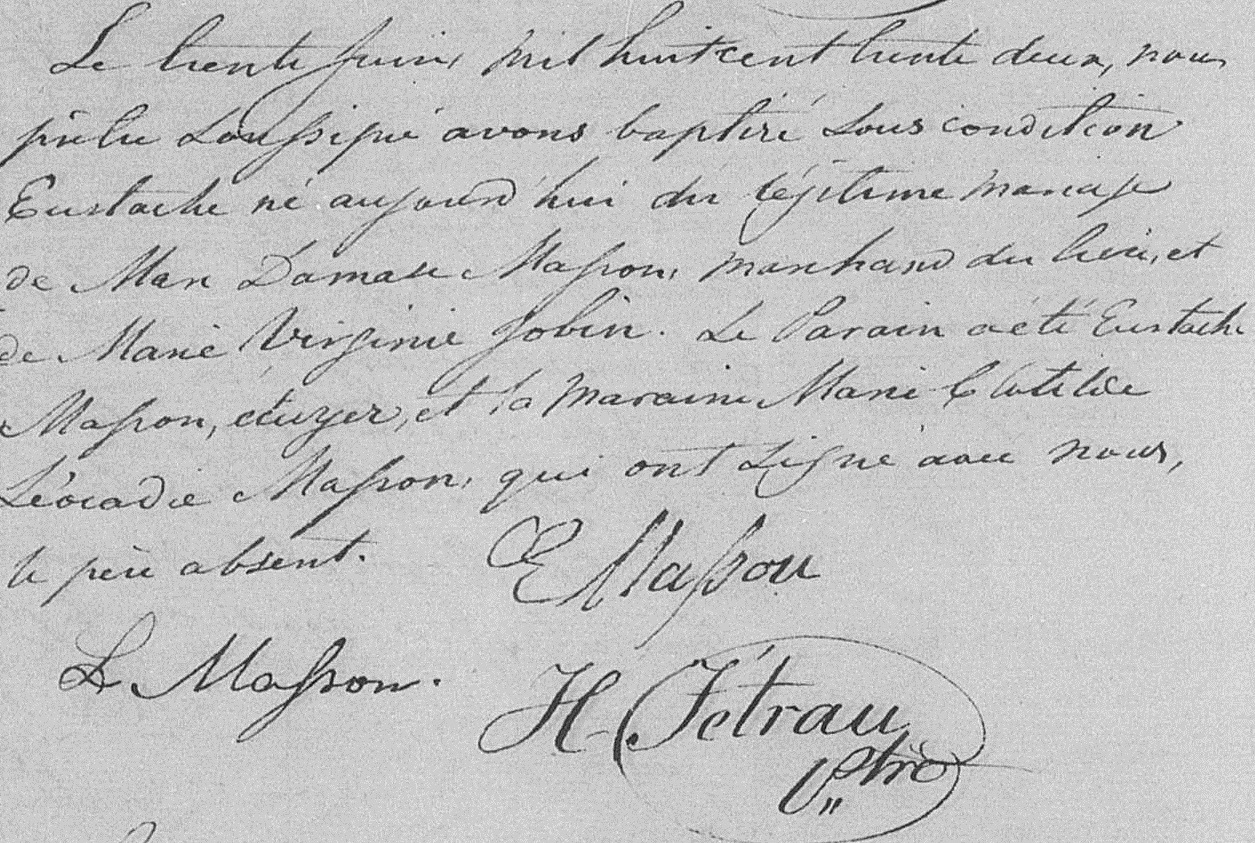 Le trente Juin, mil huit cent trente deux, nous
prêtre soussigné avons baptisé sous condition
Eustache né aujourd'hui du légitime mariage
de Marc Damase Masson, marchand du lieu, et
de Marie Virginie Jobin. Le Parain a été Eustache
Masson, écuyer, et la maraine Marie Clotilde
Léocadie Masson, qui ont signé avec nous,
le père absent.
E Masson
L Masson.
H. Tétrau
Ptre